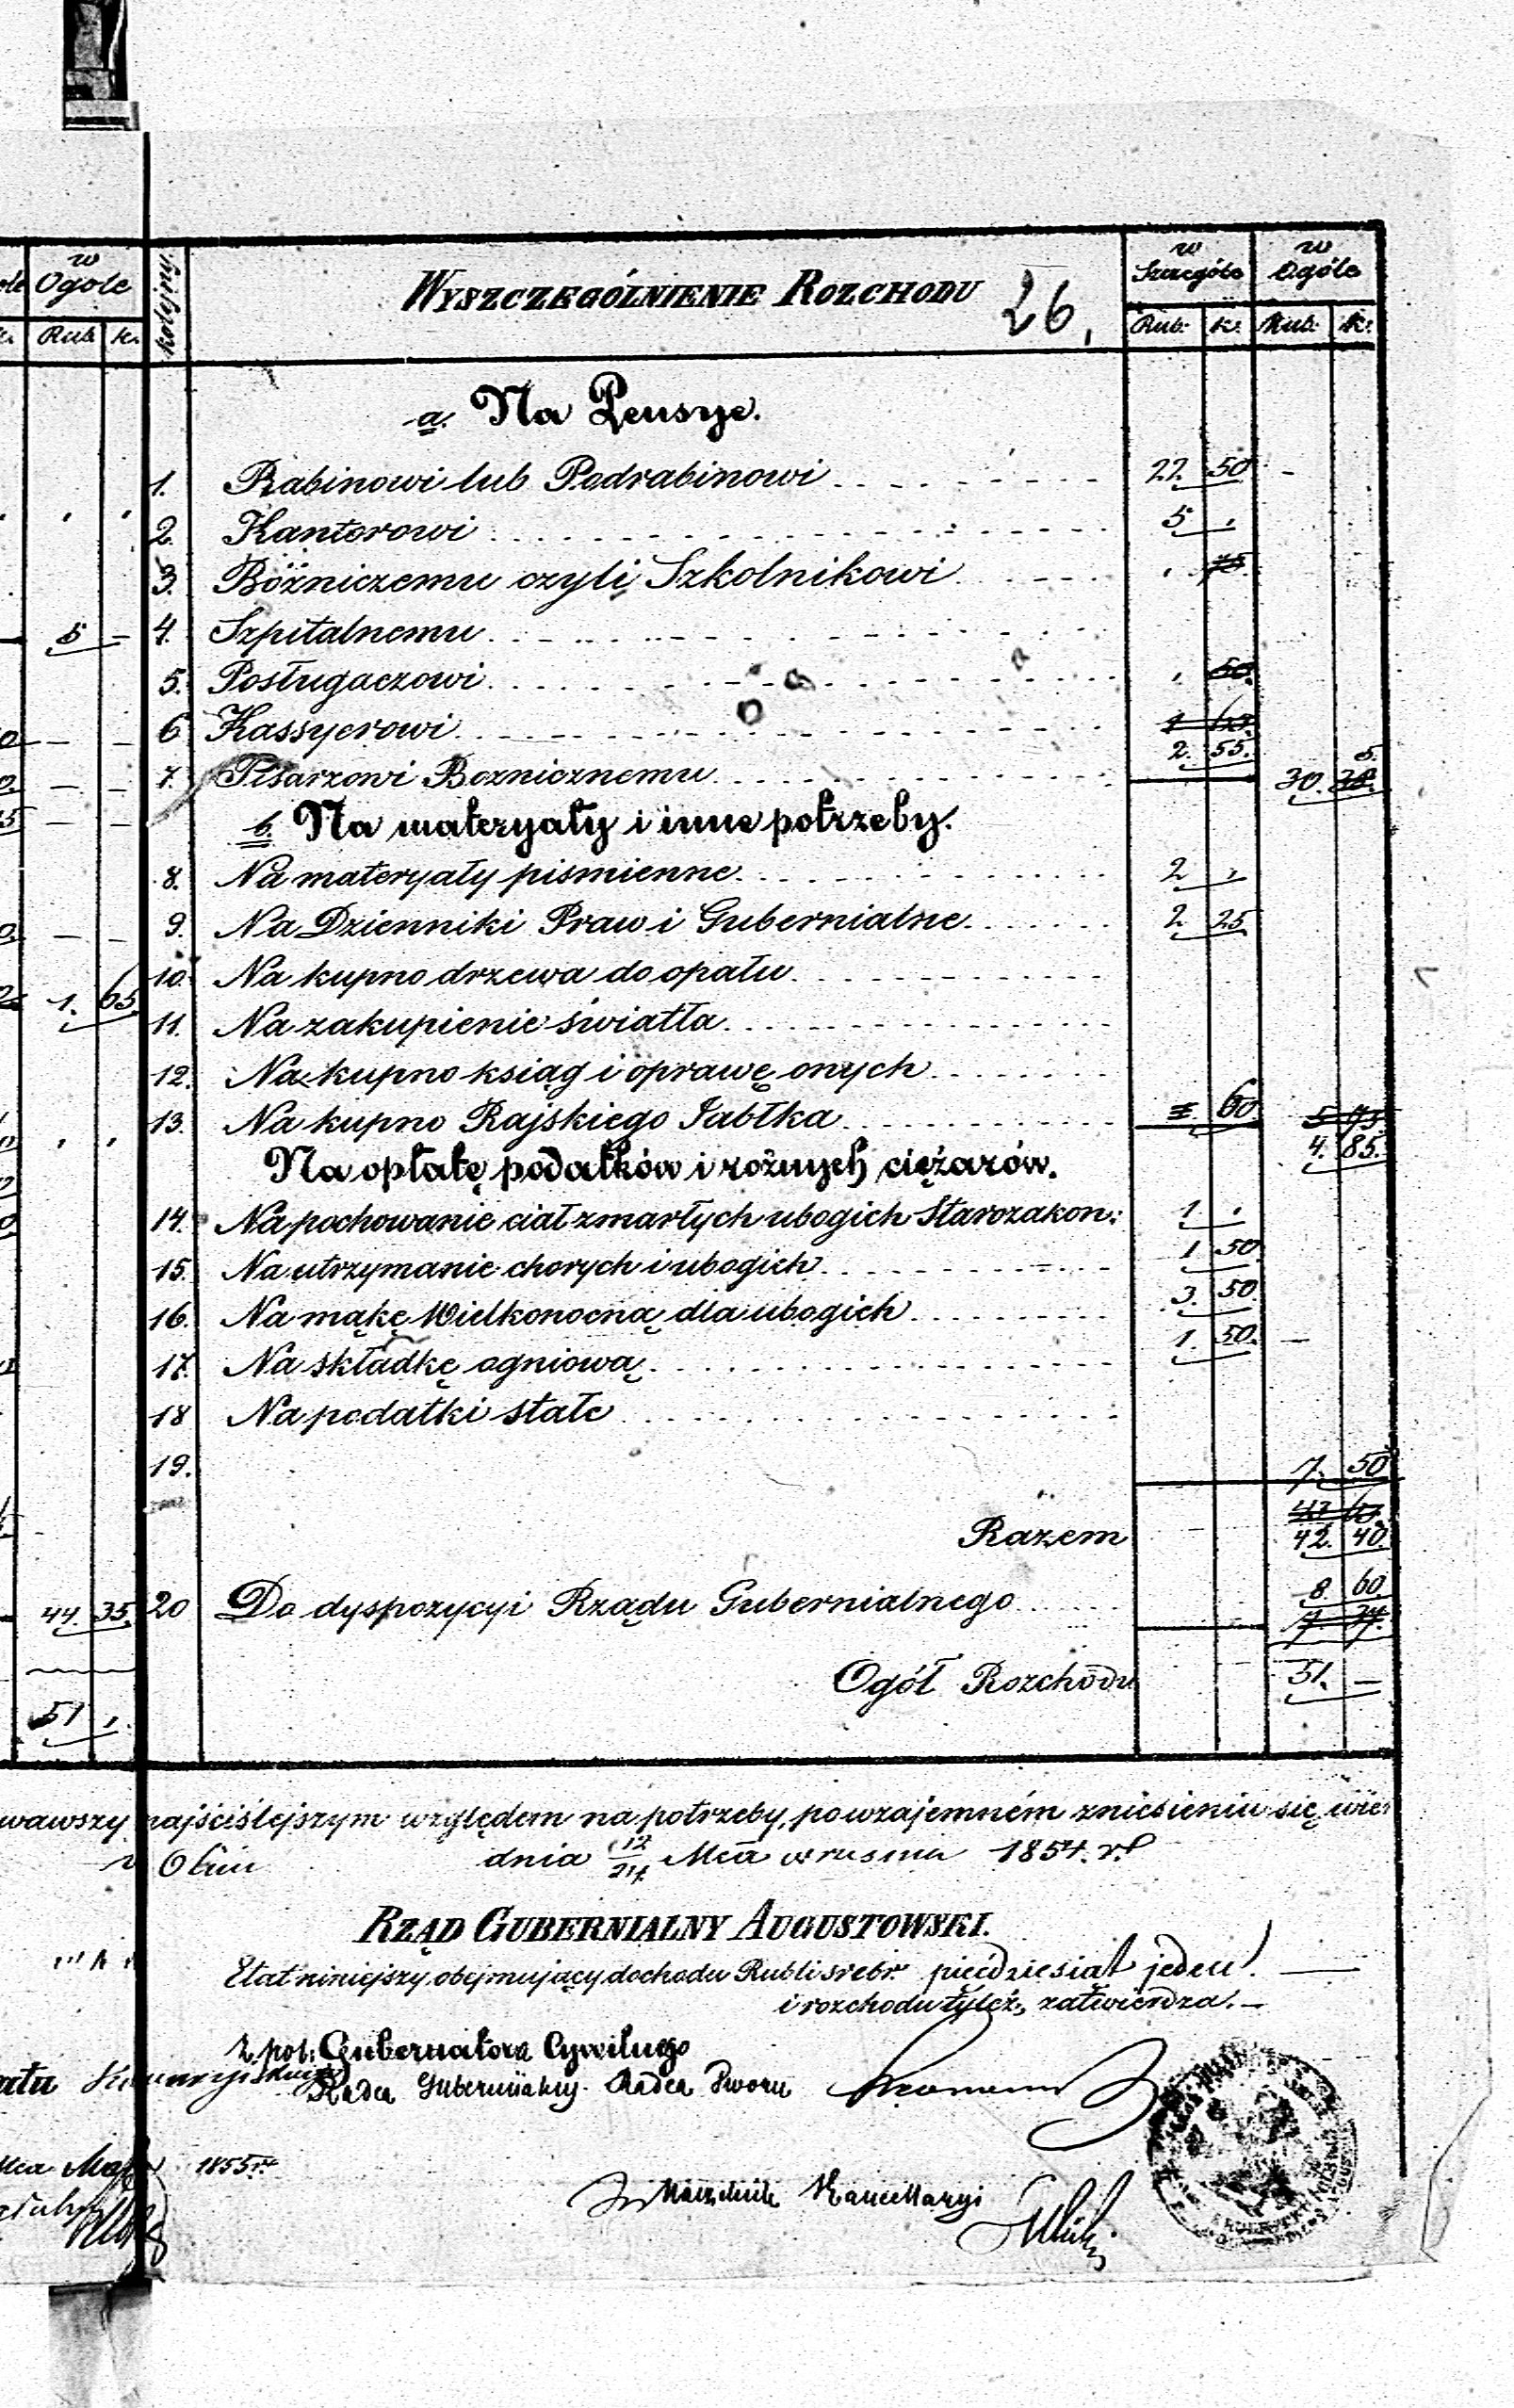 w Ogole
kolejny.
WYSZCZEGÓLNIENIE ROZCHODU 26,
w Szczególe w Ogóle
Rub k. Rub: k: Rub: k:
a. Na Pensye.
1. Rabinowi lub Podrabinowi 22. 50 -
2. Kantorowi 5 ,
3. Bóźniczemu czyli Szkolnikowi , 75.
5 - 4. Szpitalnemu
5. Posługaczowi , 50.
6 Kassyerowi 1 60.
2. 55.
7. Pisarzowi Boznicznemu 30. 30. 5.
b. Na materyały i inne potrzeby.
8. Na materyały pismienne 2 ,
9. Na Dzienniki Praw i Gubernialne 2 25
10. Na kupno drzewa do opału
1. 65
11. Na zakupienie światła
12. Na kupno ksiąg i oprawę onych
13. Na kupno Rajskiego Jabłka 60 5 95
4. 85.
Na opłatę podatków i rożnych ciężarów.
14. Na pochowanie ciał zmarłych ubogich Starozakon: 1 ,
15. Na utrzymanie chorych i ubogich 1 50
16. Na mąkę Wielkonocną dla ubogich 3. 50
17. Na składkę ogniową 1. 50. -
18 Na podatki stałe
19. 7. 50
Razem 42. 40
44. 35. 20 Do dyspozycyi Rządu Gubernialnego 8. 60
7. 37.
Ogół Rozchodu 51. -
51 ,
wawszy najściślejszym względem na potrzeby, po wzajemném zniesieniu się, wier
dnia 12/24 Mca wrusnia 1854. r.
RZĄD GUBERNIALNY AUGUSTOWSKI.
Etat niniejszy, obejmujący dochodu Rubli srebr. pięćdziesiąt jeden.
i rozchodu tyleż, zatwierdza. -
z pol: Gubernatora Cywilnego
Radca Gubernialny. Radca Dworu
1855 r.
Naczelnik Kancellaryi